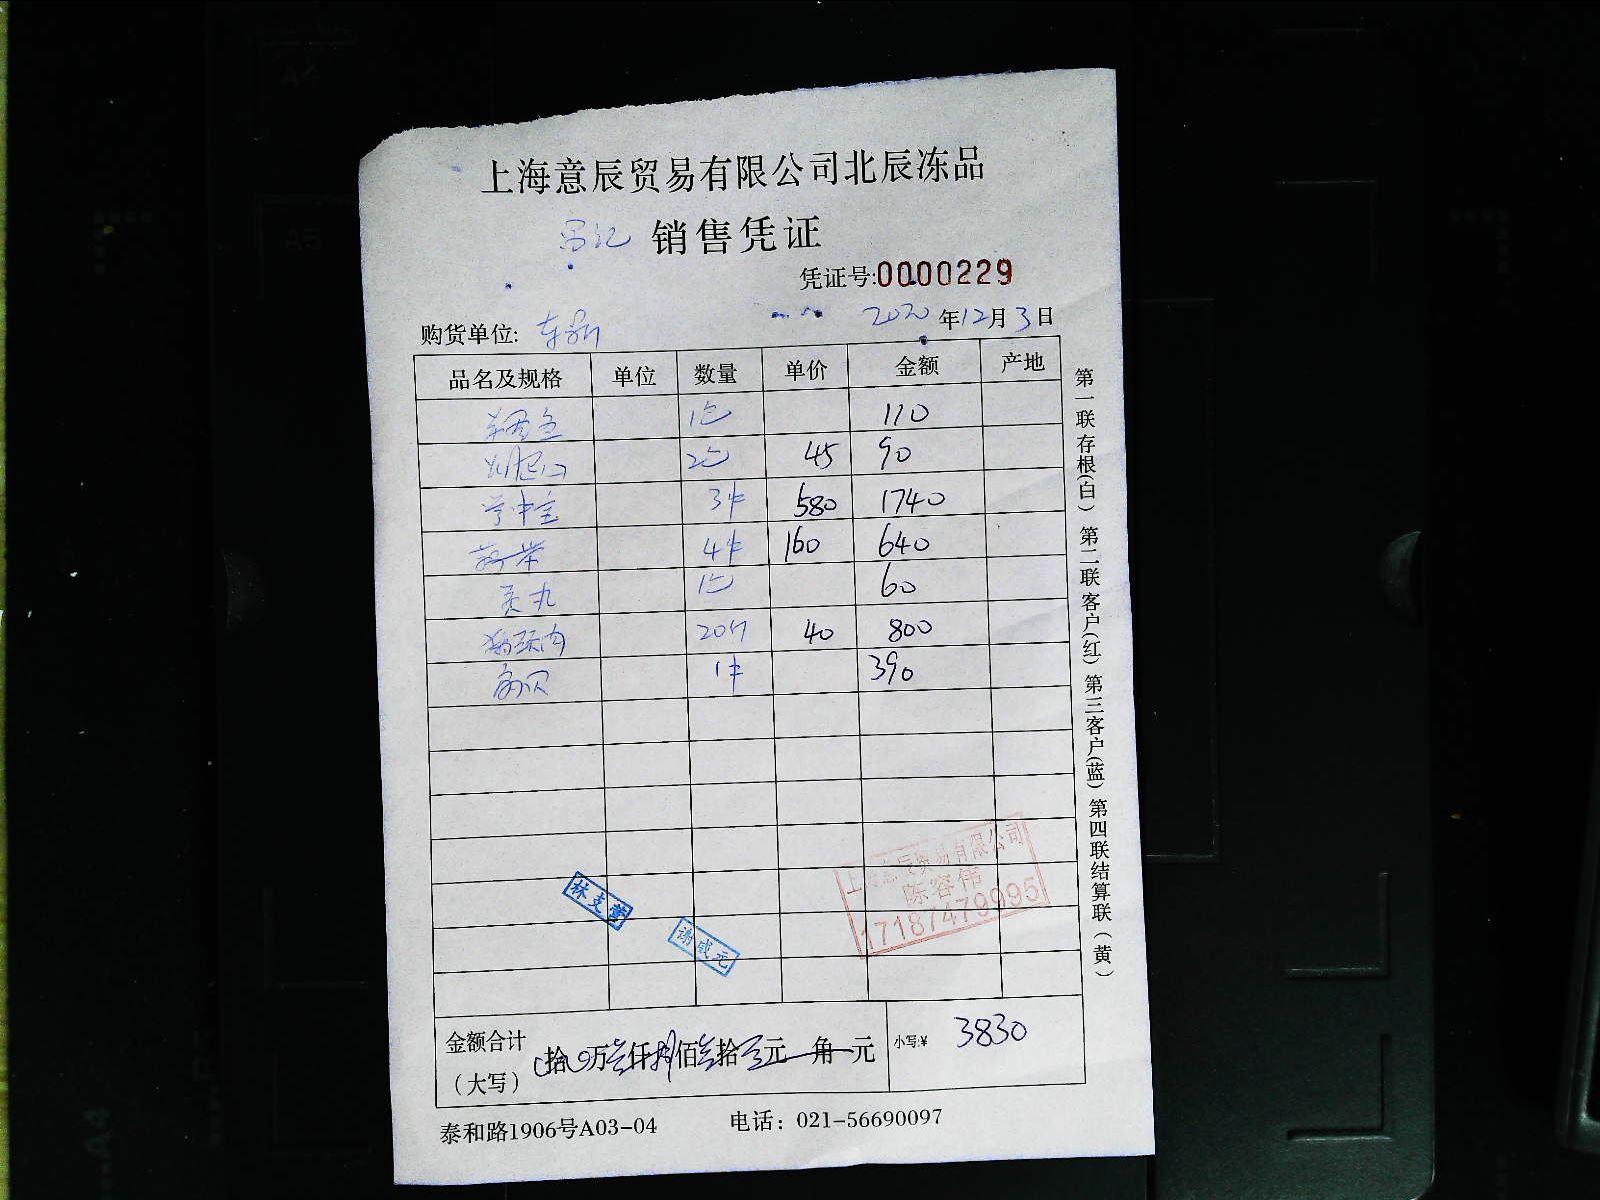 上海意辰贸易有限公司北辰冻品
销售凭证
凭证号:0000229
购货单位: 2020年12月3日
品名及规格 单位 数量 单价 金额 产地
1包 110
2包 45 90
3件 580 1740
4件 160 640
贡丸 1包 60
猪颈肉 20斤 40 800
扇贝 1件 390
上海意辰贸易有限公司
陈容伟
17187479995
林支莺
谢咸元
金额合计(大写) 拾0万叁仟捌佰叁拾零元 角 元 小写:¥ 3830
泰和路1906号A03-04 电话: 021-56690097
第一联存根(白) 第二联客户(红) 第三客户(蓝) 第四联结算联(黄)